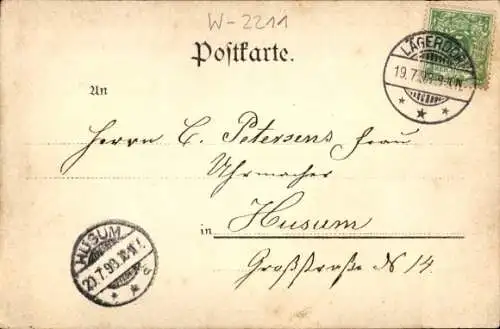 W-2211
Postkarte.
LÄGERDORF
19.7.98.
An
Herrn C. Petersens Frau
Uhrmacher
in Husum
Großstraße N 14.
HUSUM
20.7.98.